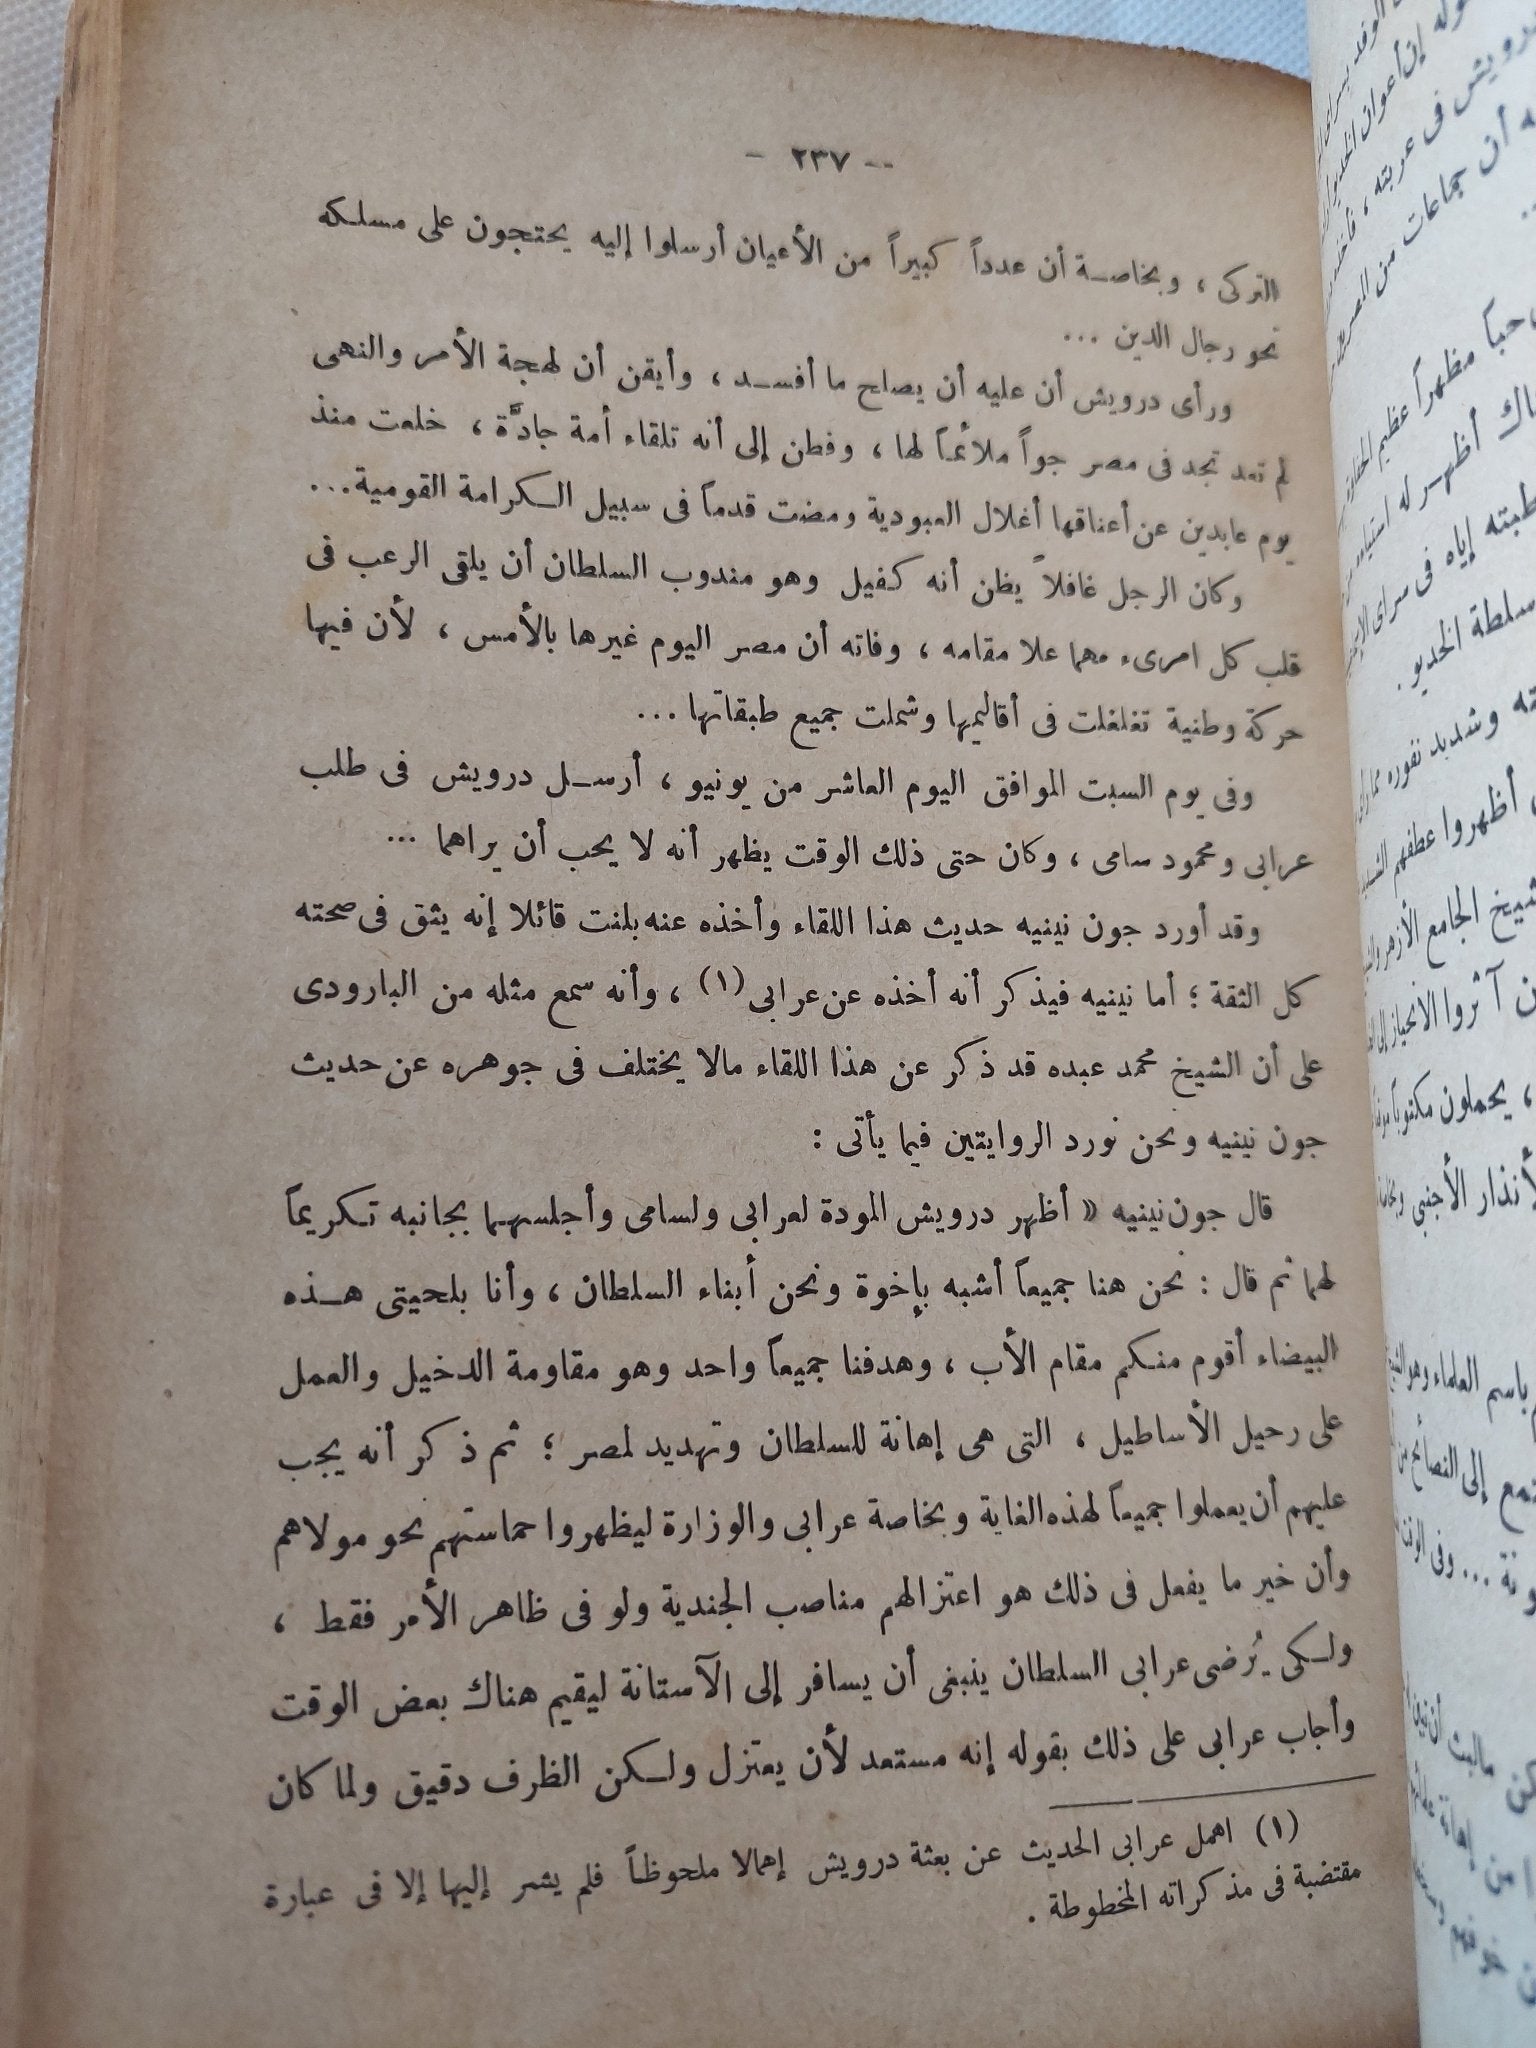 -- ٢٣٧ -
التركى ، وبخاصة أن عدداً كبيراً من الأعيان أرسلوا إليه يحتجون على مسلكه
نحو رجال الدين ...
ورأى درويش أن عليه أن يصلح ما أفسد ، وأيقن أن لهجة الأمر والنهى
لم تعد تجد فى مصر جواً ملائماً لها ، وفطن إلى أنه تلقاء أمة جادَّة ، خلعت منذ
يوم عابدين عن أعناقها أغلال العبودية ومضت قدماً فى سبيل الكرامة القومية...
وكان الرجل غافلاً يظن أنه كفيل وهو مندوب السلطان أن يلقى الرعب فى
قلب كل امرىء مهما علا مقامه ، وفاته أن مصر اليوم غيرها بالأمس ، لأن فيها
حركة وطنية تغلغلت فى أقاليمها وشملت جميع طبقاتها ...
وفى يوم السبت الموافق اليوم العاشر من يونيو ، أرسل درويش فى طلب
عرابى ومحمود سامى ، وكان حتى ذلك الوقت يظهر أنه لا يحب أن يراهما ...
وقد أورد جون نينيه حديث هذا اللقاء وأخذه عنه بلنت قائلا إنه يثق فى صحته
كل الثقة ؛ أما نينيه فيذكر أنه أخذه عن عرابى (١) ، وأنه سمع مثله من البارودى
على أن الشيخ محمد عبده قد ذكر عن هذا اللقاء مالا يختلف فى جوهره عن حديث
جون نينيه ونحن نورد الروايتين فيما يأتى :
قال جون نينيه « أظهر درويش المودة لعرابى ولسامى وأجلسهما بجانبه تكريماً
لهما ثم قال : نحن هنا جميعاً أشبه بإخوة ونحن أبناء السلطان ، وأنا بلحيتى هذه
البيضاء أقوم منكم مقام الأب ، وهدفنا جميعاً واحد وهو مقاومة الدخيل والعمل
على رحيل الأساطيل ، التى هى إهانة للسلطان وتهديد لمصر ؛ ثم ذكر أنه يجب
عليهم أن يعملوا جميعاً لهذه الغاية وبخاصة عرابى والوزارة ليظهروا حماستهم نحو مولاهم
وأن خير ما يفعل فى ذلك هو اعتزالهم مناصب الجندية ولو فى ظاهر الأمر فقط ،
ولكى يُرضى عرابى السلطان ينبغى أن يسافر إلى الآستانة ليقيم هناك بعض الوقت
وأجاب عرابى على ذلك بقوله إنه مستعد لأن يعتزل ولكن الظرف دقيق ولما كان
(١) اهمل عرابى الحديث عن بعثة درويش إهمالا ملحوظاً فلم يشر إليها إلا فى عبارة
مقتضبة فى مذكراته المخطوطة .